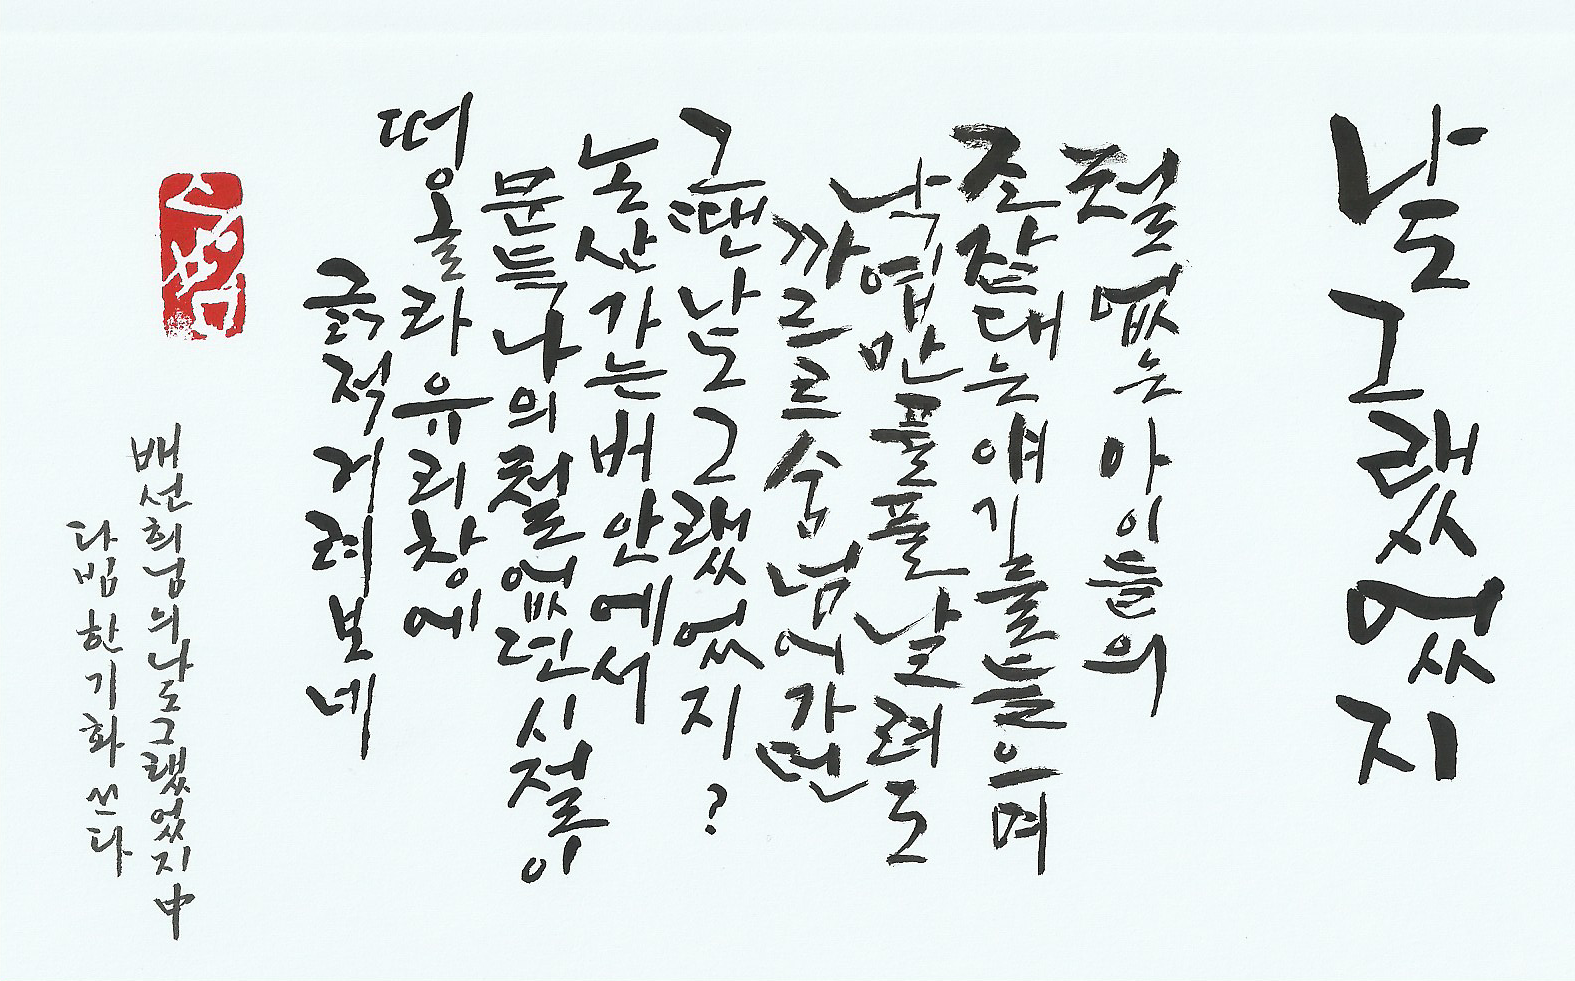 나도 그랬었지
철 없는 아이들의
조잘대는 얘기를 들으며
낙엽만 폴폴 날려도
까르르 숨 넘어가던
그땐 나도 그랬었지?
논산가는 버안에서
문득 나의 철없던 시절이
떠올라 유리창에
긁적거려보네
배선희님의 나도그랬었지 中
다빔 한기화 쓰다